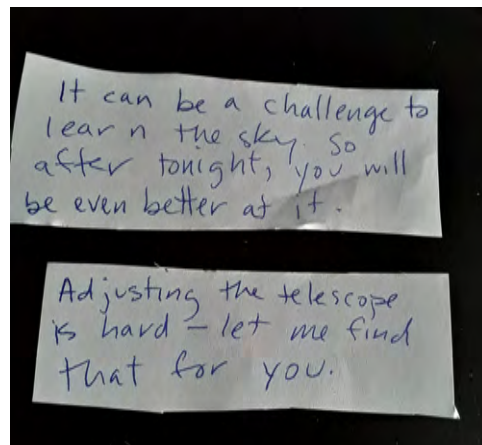 It can be a challenge to
learn the sky. So
after tonight, you will
be even better at it.
Adjusting the telescope
is hard – let me find
that for you.